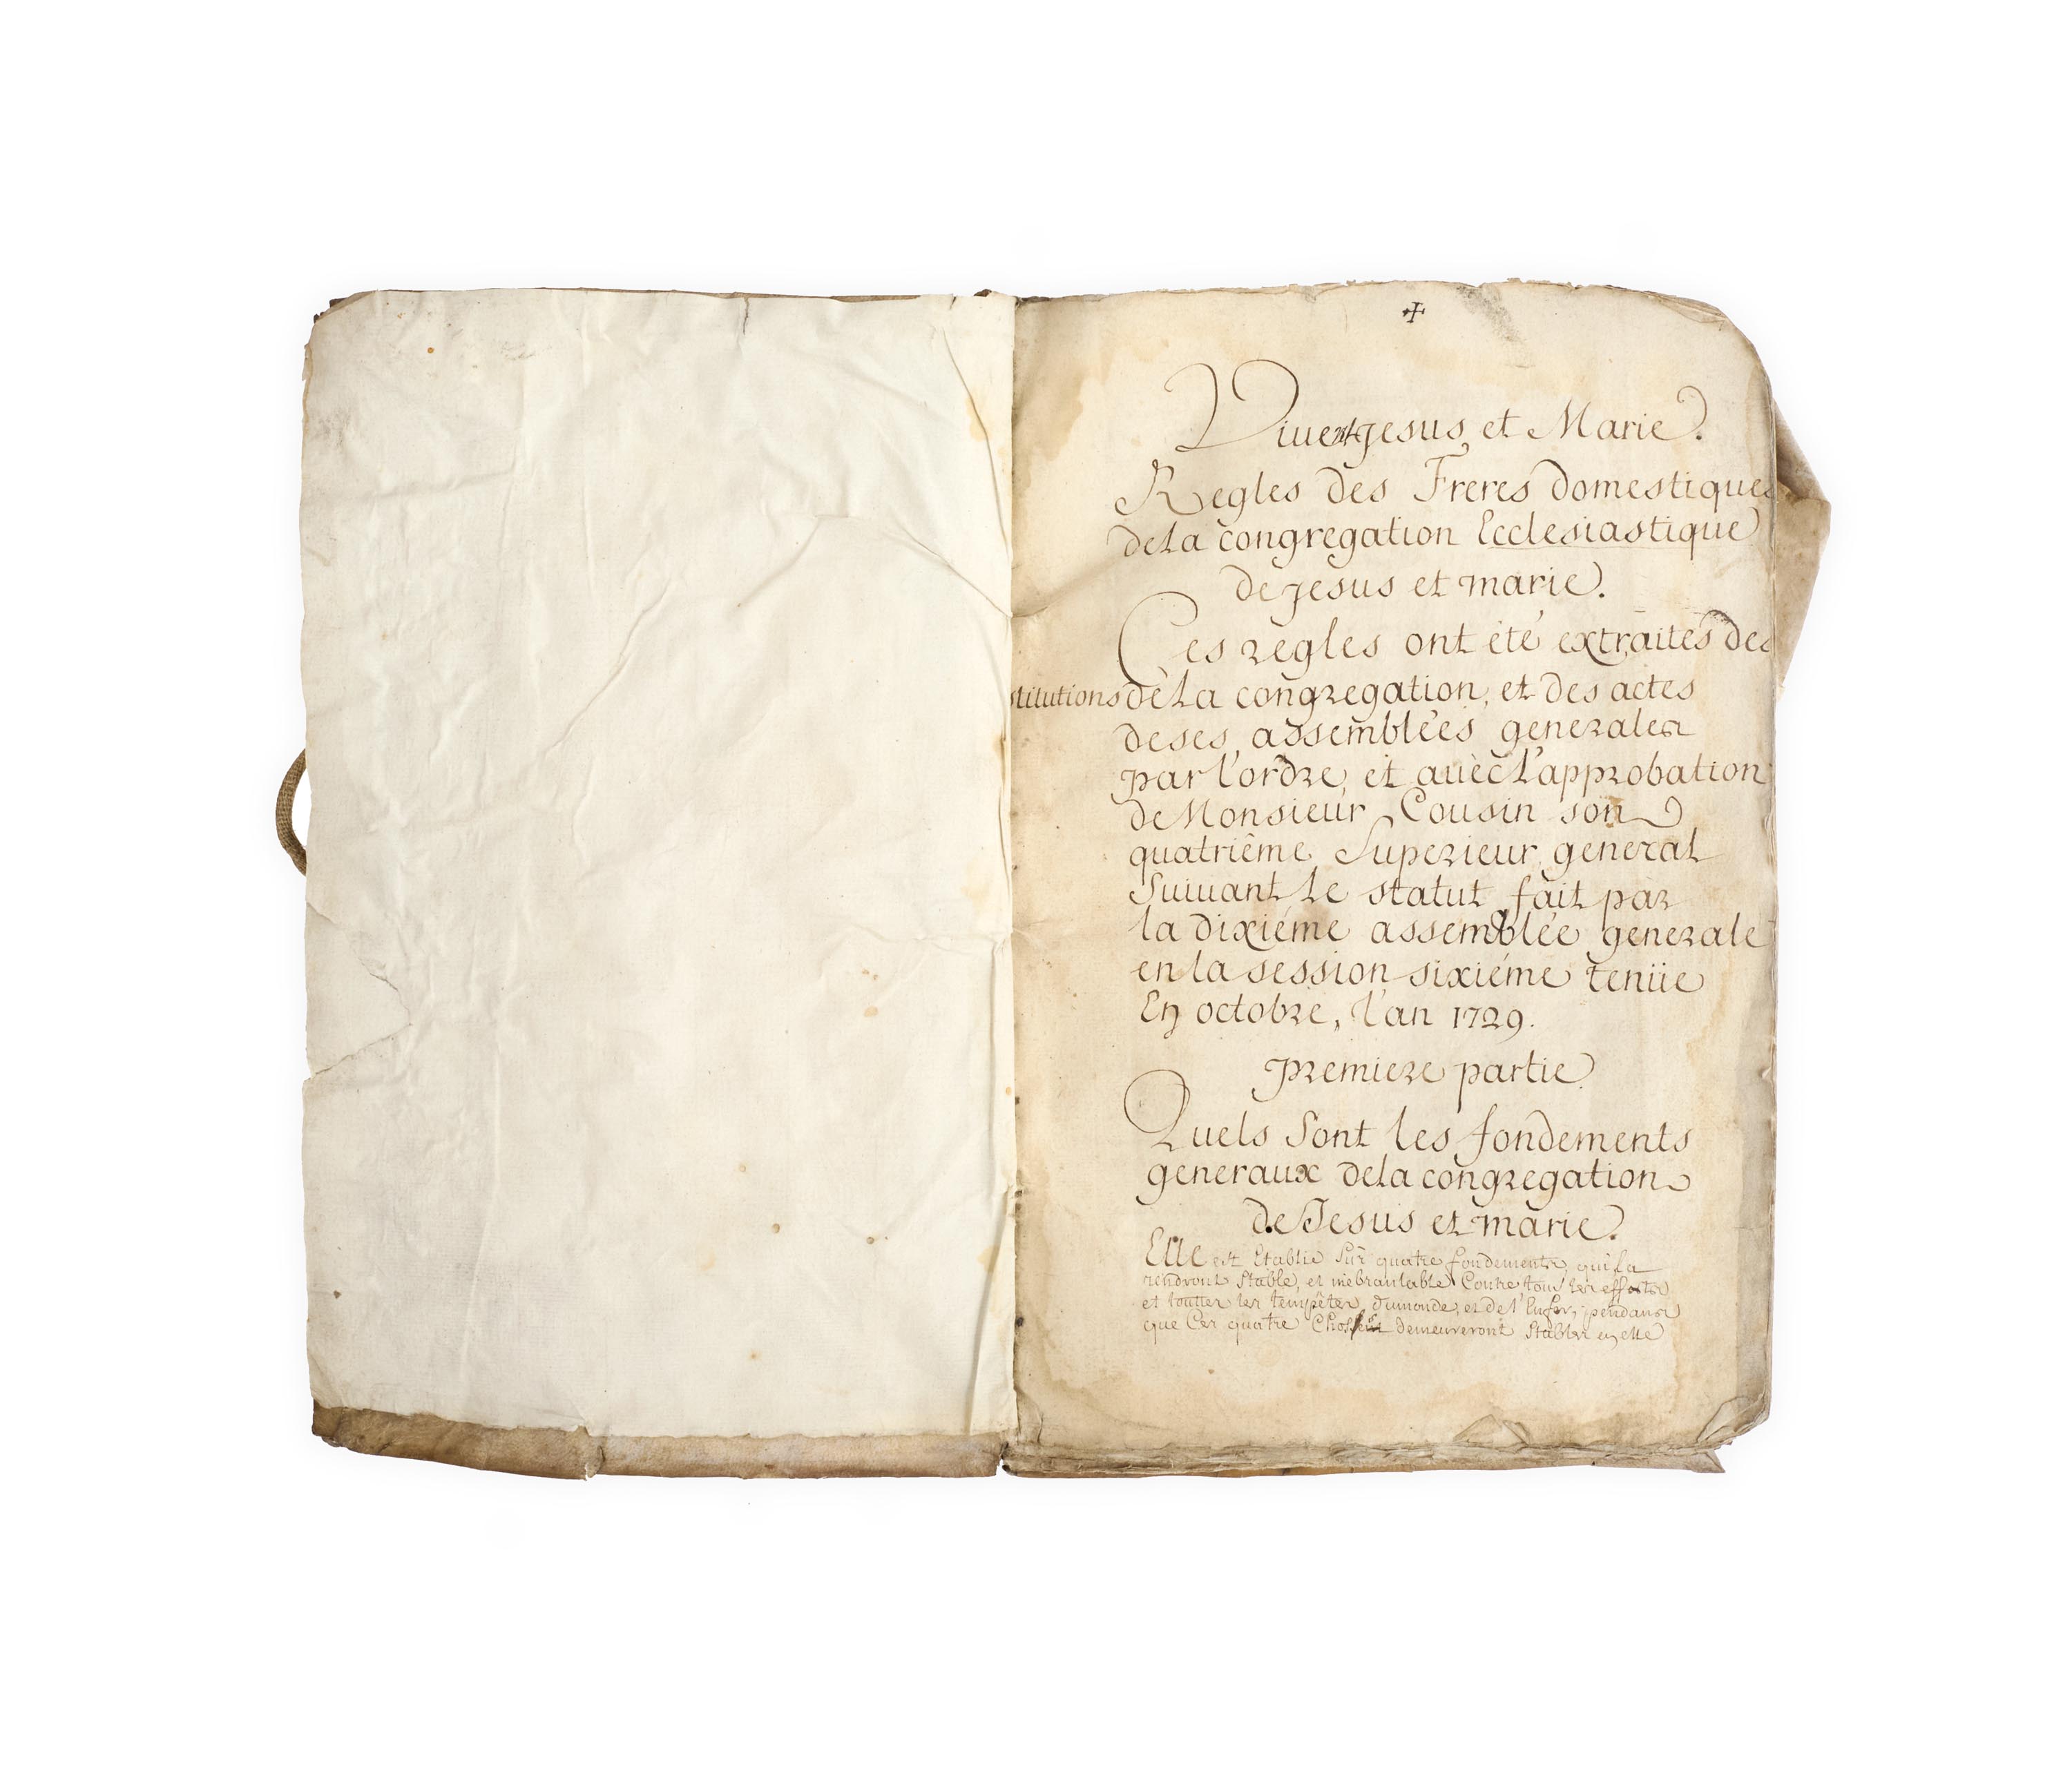 ✢
Vivent Jesus et Marie.
Regles des Freres domestiques
de la congregation Ecclesiastique
de jesus et marie.
Ces regles ont été extraites des
stitutions de la congregation, et des actes
de ses assemblées generales
par l'ordre, et auèc l'approbation
de Monsieur Cousin son
quatriême Superieur general
Suiuant le statut fait par
la dixiéme assemblée generale
en la session sixiéme tenüe
En octobre, l'an 1729.
premiere partie.
Quels Sont les fondements
generaux de la congregation
de Jesus et marie.
Elle est Etablie Sur quatre fondements, qui la
rendront Stable, et inebranlable Contre tous les efforts
et touttes les tempêtes du monde, et de l'Enfer, pendant
que Ces quatre Choses demeureront Stables en elle